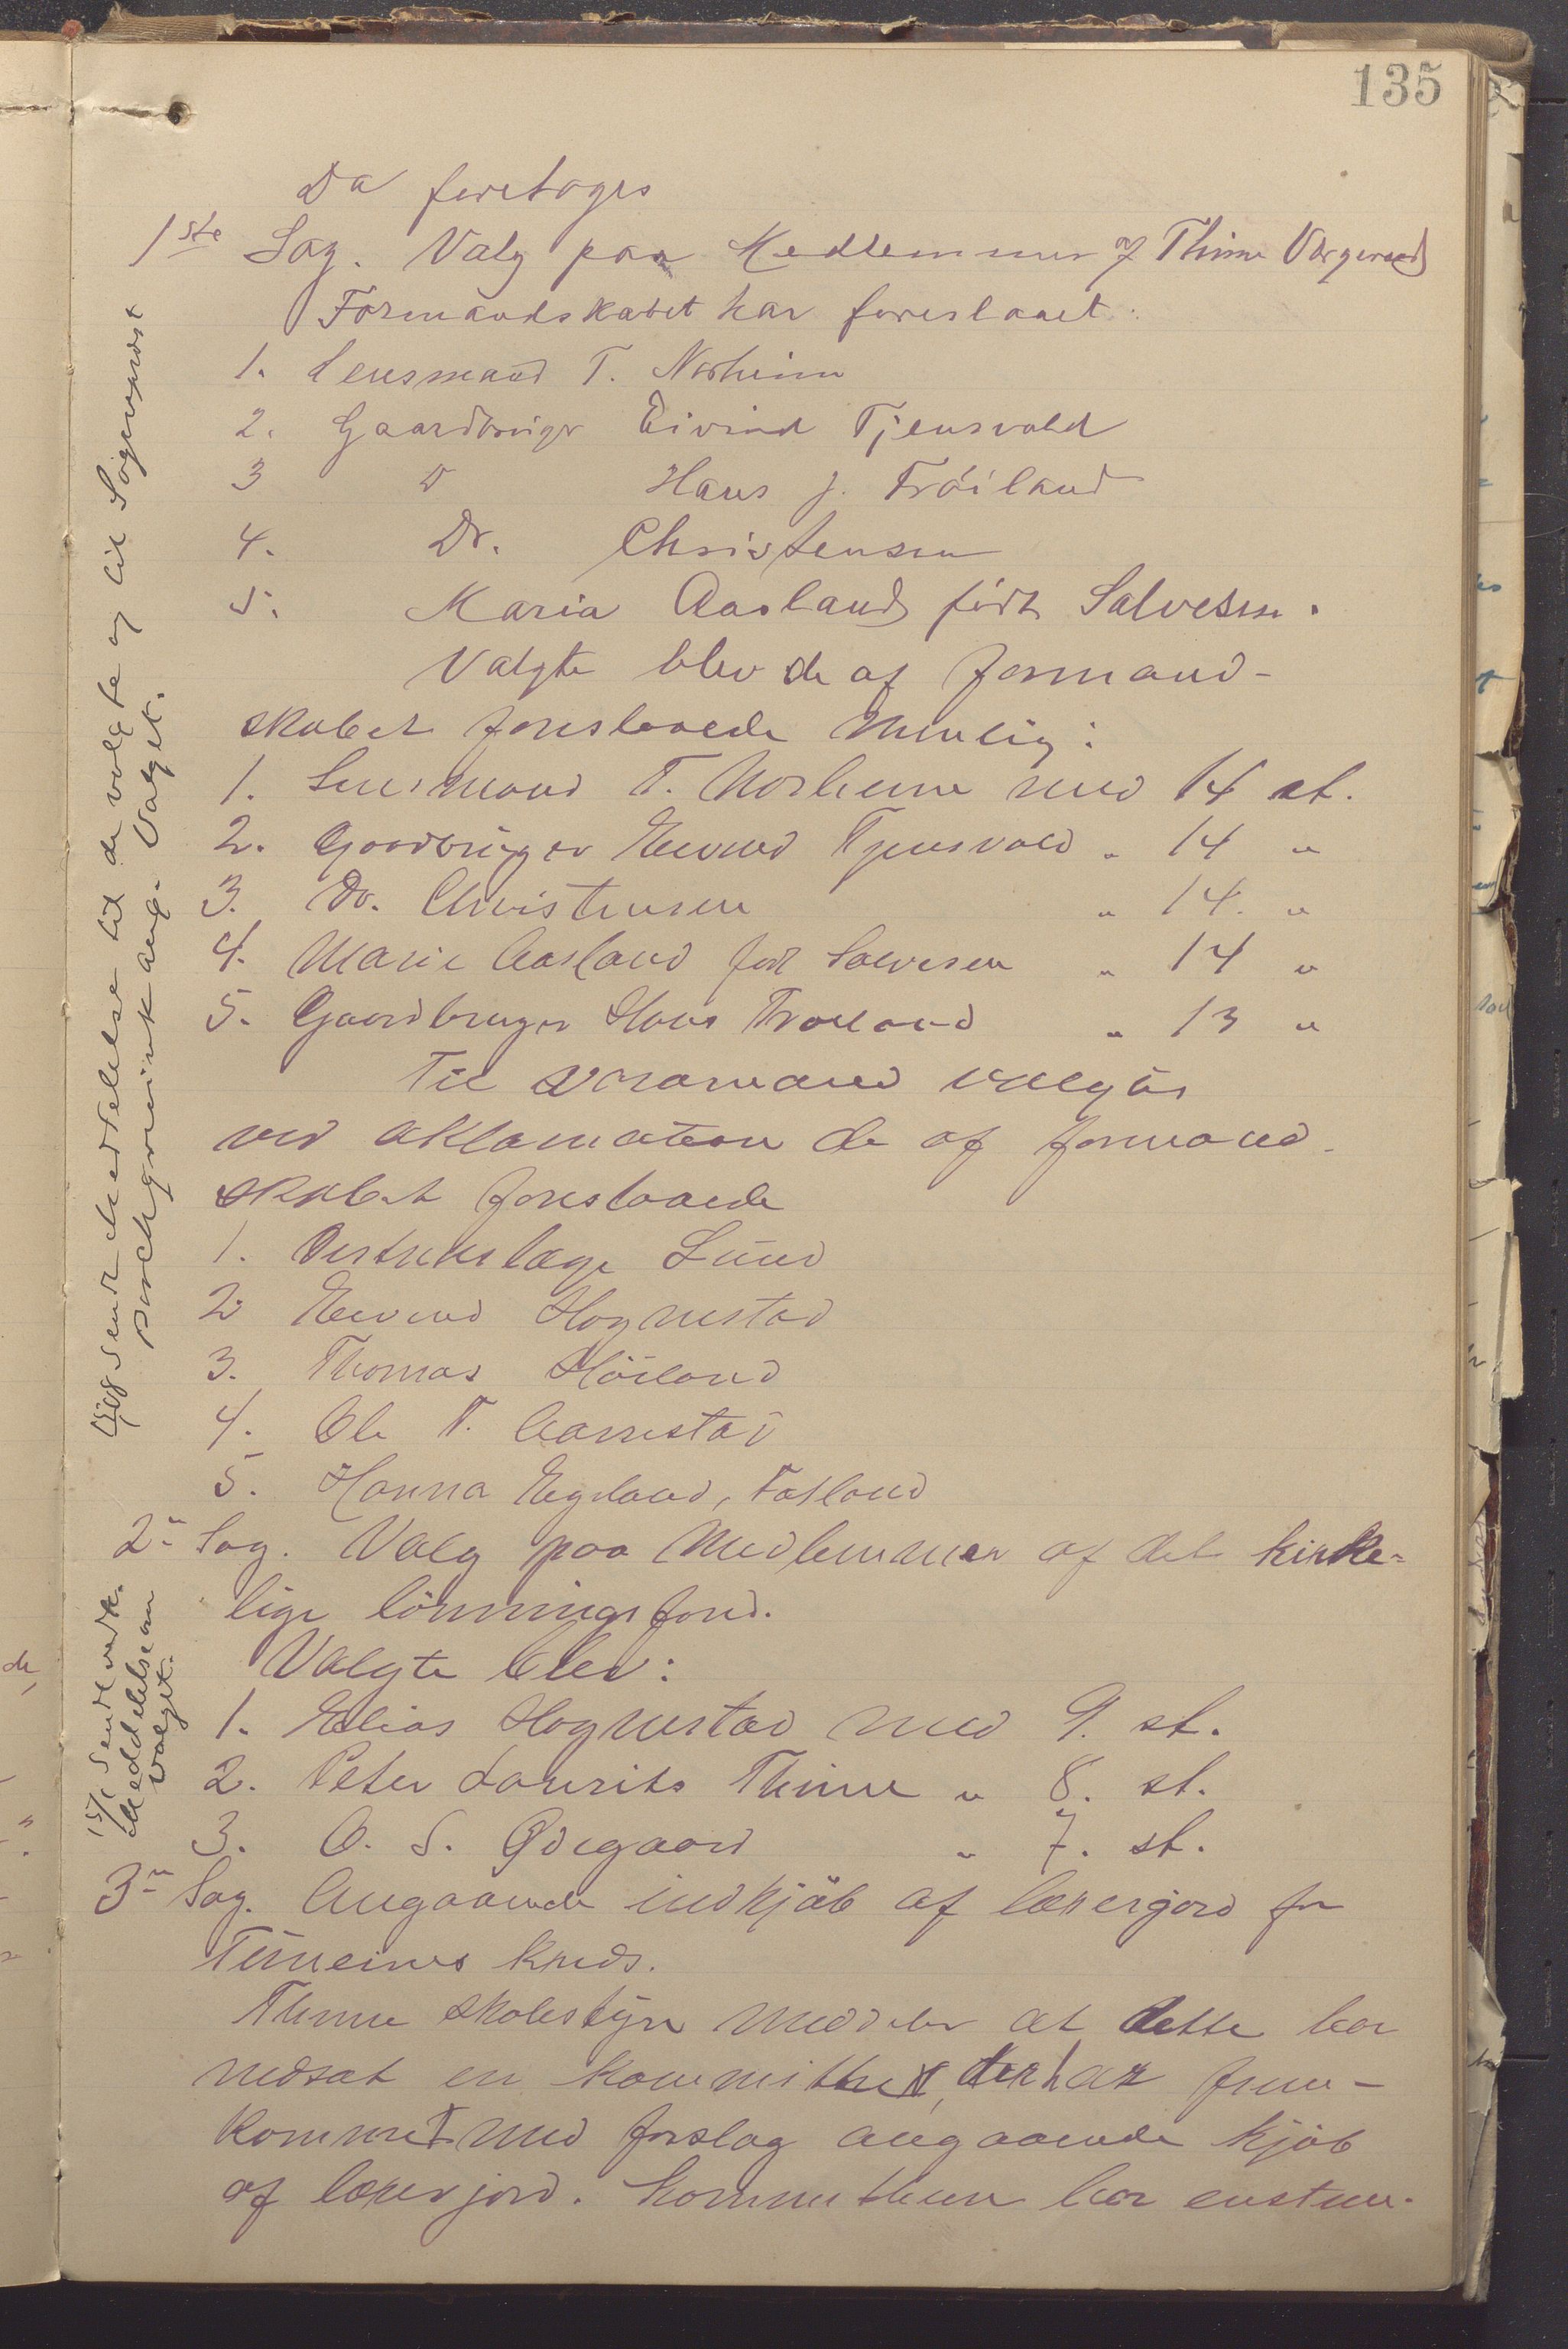 135
Da foretoges
1ste Sag. Valg paa Medlemmer af Thime Værgeraad
Formandskabet har foreslaaet:
1. Lensmand T. Norheim
2. Gaardbruger Eivind Tjensvold
3 D Hans J. Fröiland
4. Dr. Christensen
5. Maria Aasland födt Salvesen.
Valgte blev de af formand-
skabet foreslaaede nemlig:
1. Lensmand T. Norheim med 14 st.
2. Gaardbruger Eivind Tjensvold " 14 "
3. Dr. Christensen " 14. "
4. Marie Aasland født Salvesen " 14 "
5. Gaardbruger Hans Froiland " 13 "
Til varamænd valgtes
ved aklamation de af formand-
skabet foreslaaede
1. Distriktslæge Lund
2 Eivind Hognestad
3. Thomas Höiland
4. Ole T. Aarrestad
5. Hanna Eegeland, Fosland
2" Sag. Valg paa Medlemmer af det kirke-
lige lönningsfond.
Valgte blev:
1. Elias Hognestad med 9. st.
2. Peter Laurits Thime " 8. st.
3. O. S. Ødegaard " 7. st.
3" Sag. Angaaende indkjöb af lærerjord for
Timeines kreds.
Thime skolestyre meddeler at dette har
nedsat en kommitte, der har frem-
kommet med forslag angaaende kjöb
af lærerjord. Kommitheen har enstem-
sendt Meddelelse til de valgte og til Sogneprest
ang. Valget.
15/1 Sendt
Meddelelse om
Valget.